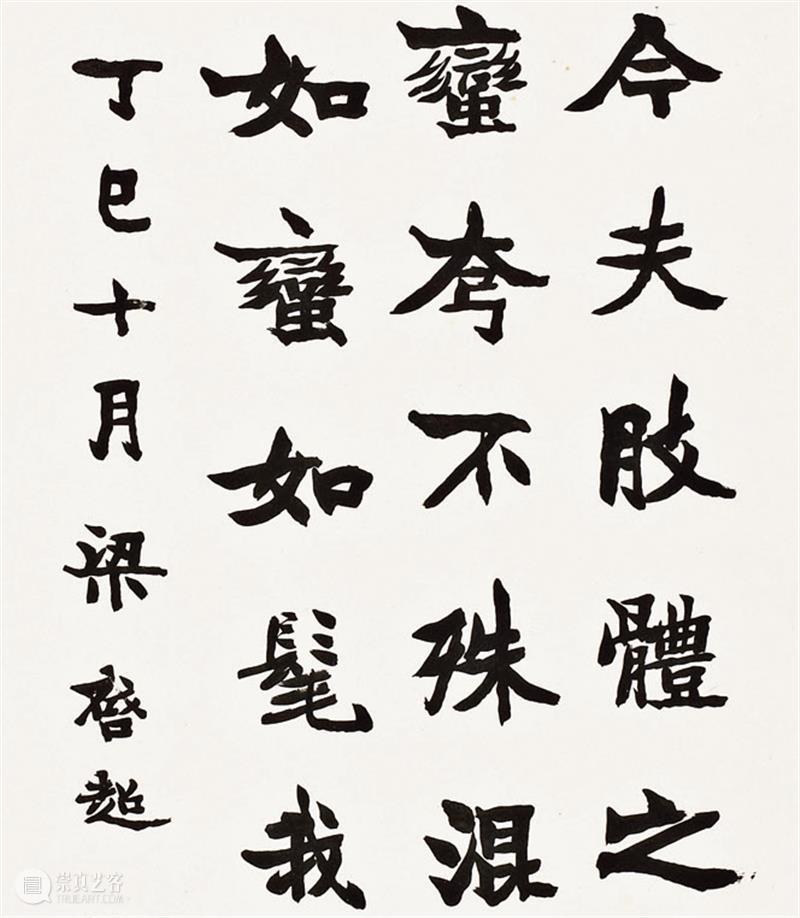 今夫肢體之
蠻夸不殊混
如蠻如髦我
丁巳十月梁啓超
崇真艺客
TRUEART.COM